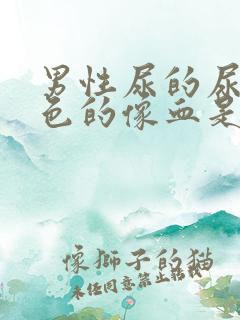 男性尿的尿
色的像血是
像狮子的猫
未任同意禁止转载